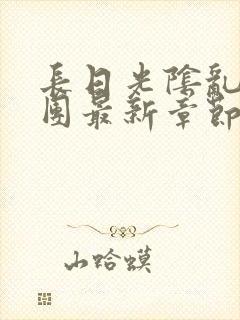 長日光陰亂
團最新章節
山蛤蟆